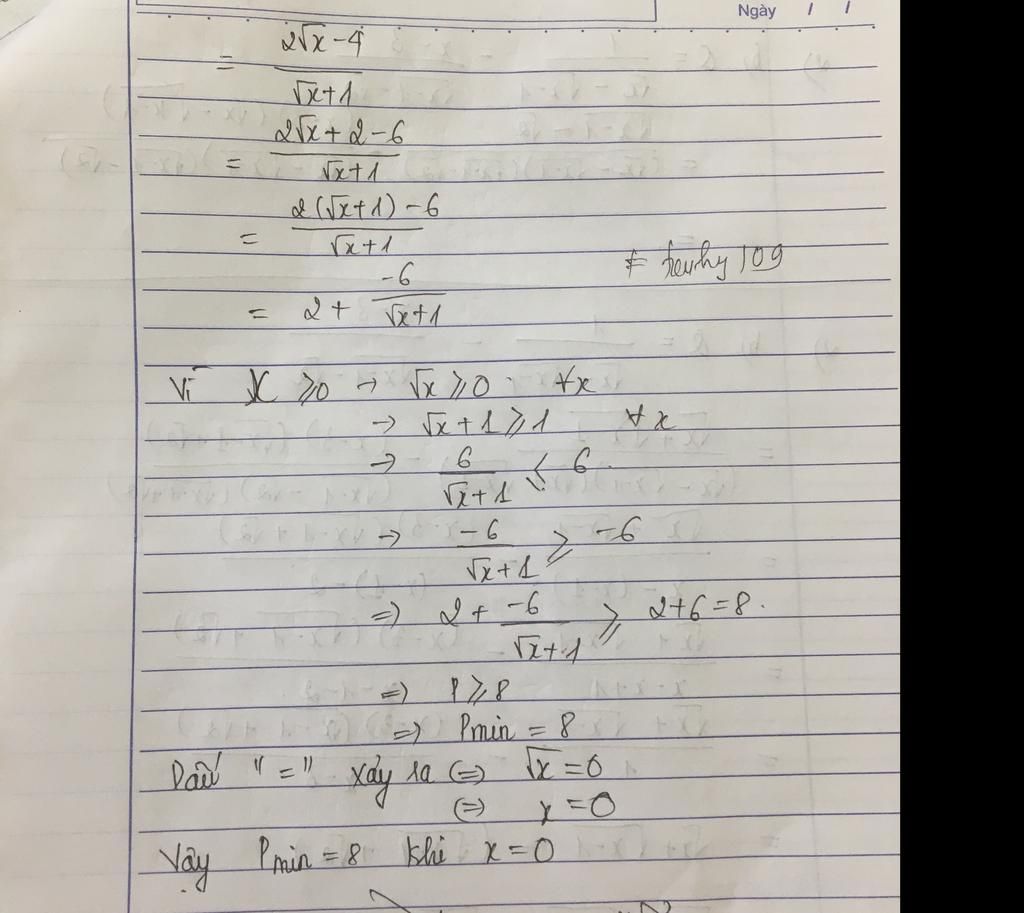 Ngày / /
= (2√x - 4)/(√x+1)
= (2√x + 2 - 6)/(√x+1)
= (2(√x+1) - 6)/(√x+1)
109
= 2 + (-6)/(√x+1)
Vì x ⩾ 0 → √x ⩾ 0 ∀x
→ √x + 1 ⩾ 1 ∀x
→ 6/(√x+1) ⩽ 6
→ (-6)/(√x+1) ⩾ -6
=> 2 + (-6)/(√x+1) ⩾ 2+6 = 8.
=> P ⩾ 8
=> Pmin = 8
Dấu "=" xảy ra <=> √x = 0
<=> x = 0
Vậy Pmin = 8 khi x = 0